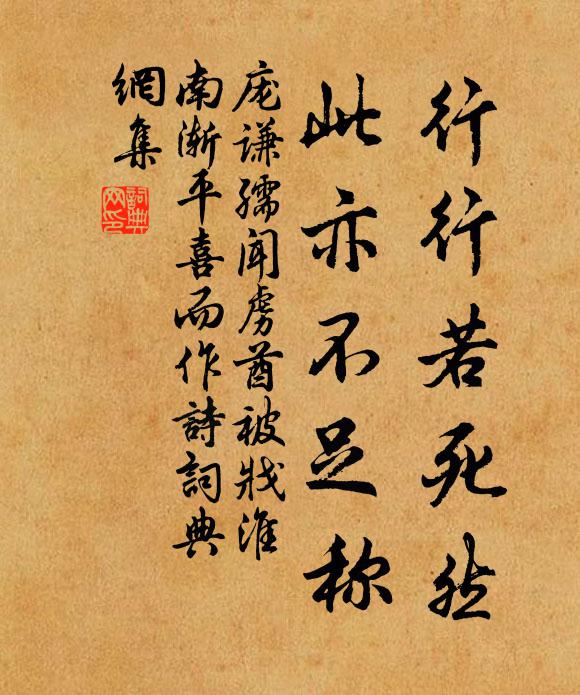 行行若死然
此亦不足称
庞谦孺闻虏酋被戕淮
南渐平喜而作詩詞典
網集
詞典
网印